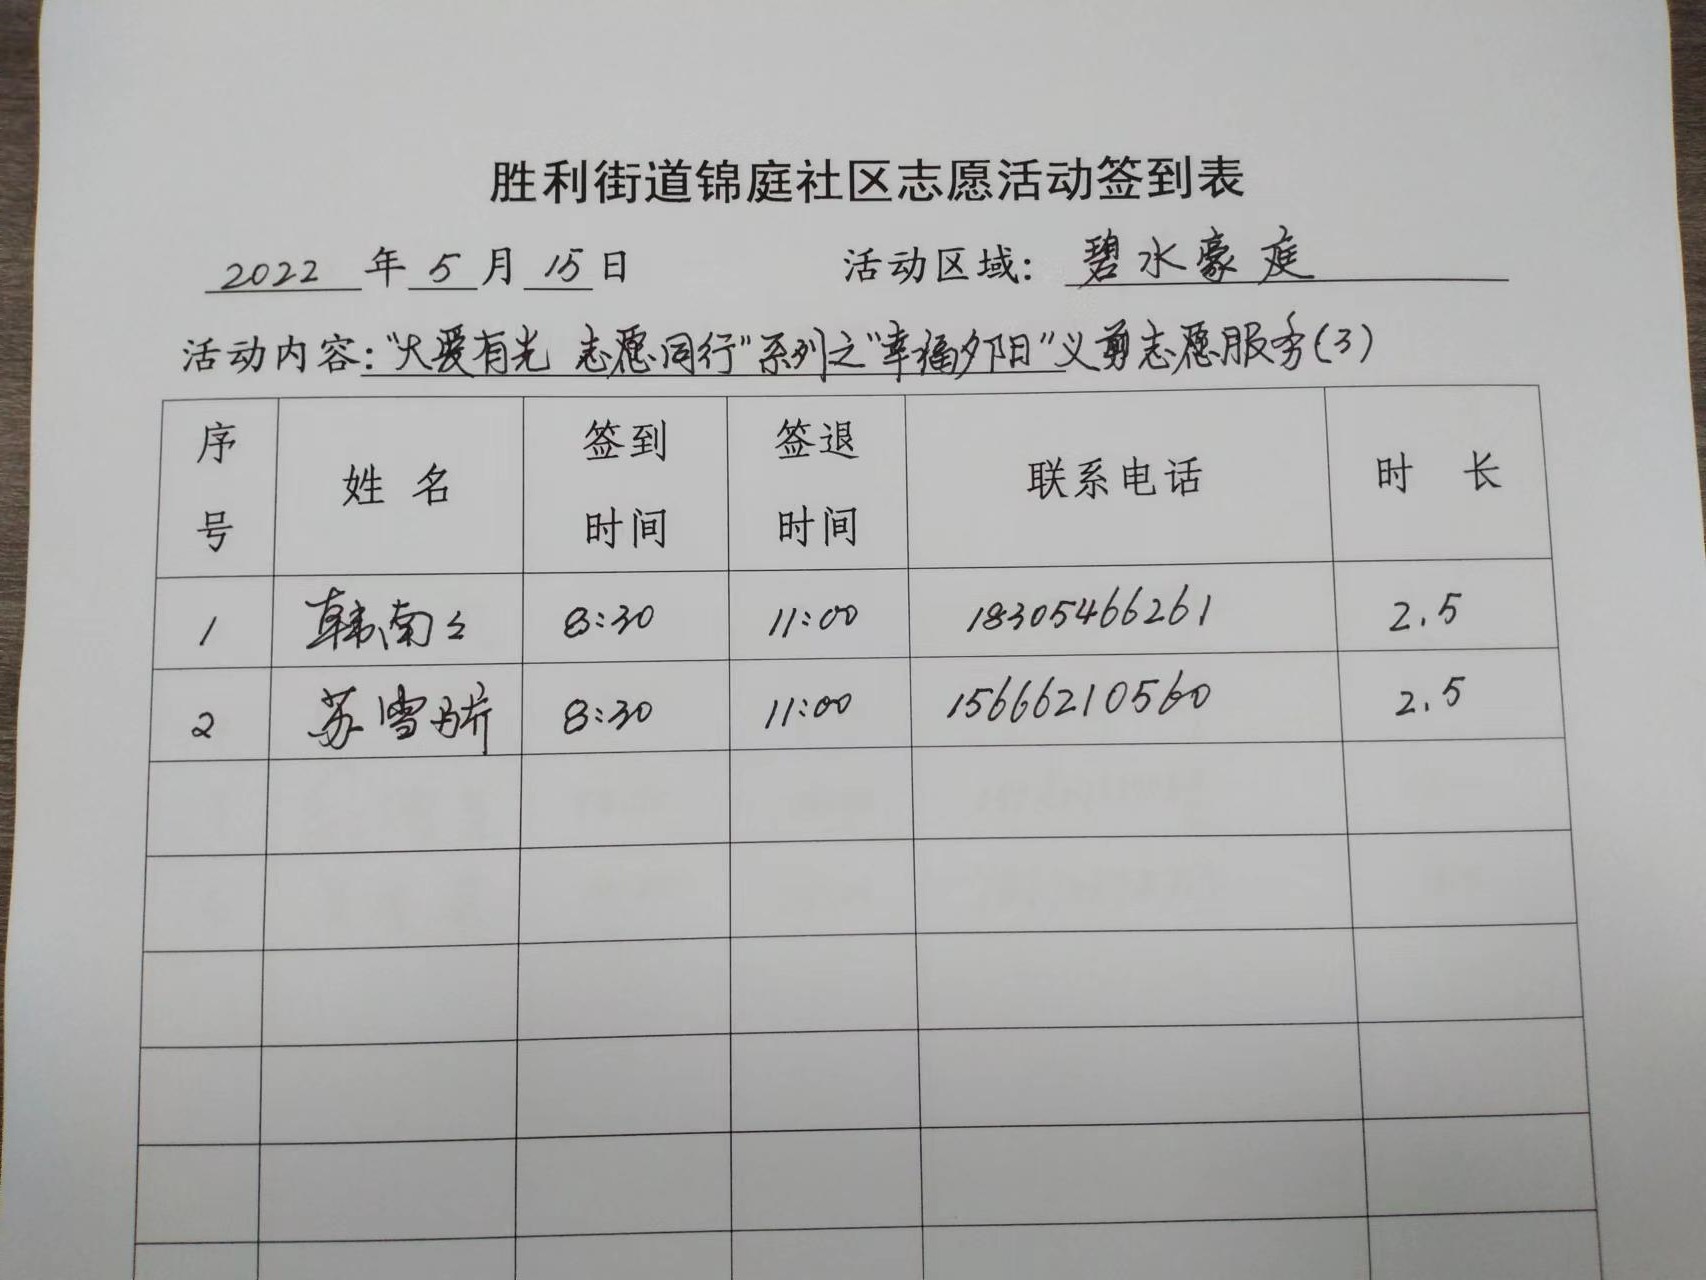 胜利街道锦庭社区志愿活动签到表
2022 年 5 月 15 日 活动区域: 碧水豪庭
活动内容:"大爱有光 志愿同行"系列之"幸福夕阳"义剪志愿服务(3)
序号 姓名 签到时间 签退时间 联系电话 时长
1 韩南々 8:30 11:00 18305466261 2.5
2 苏雪骄 8:30 11:00 15666210560 2.5